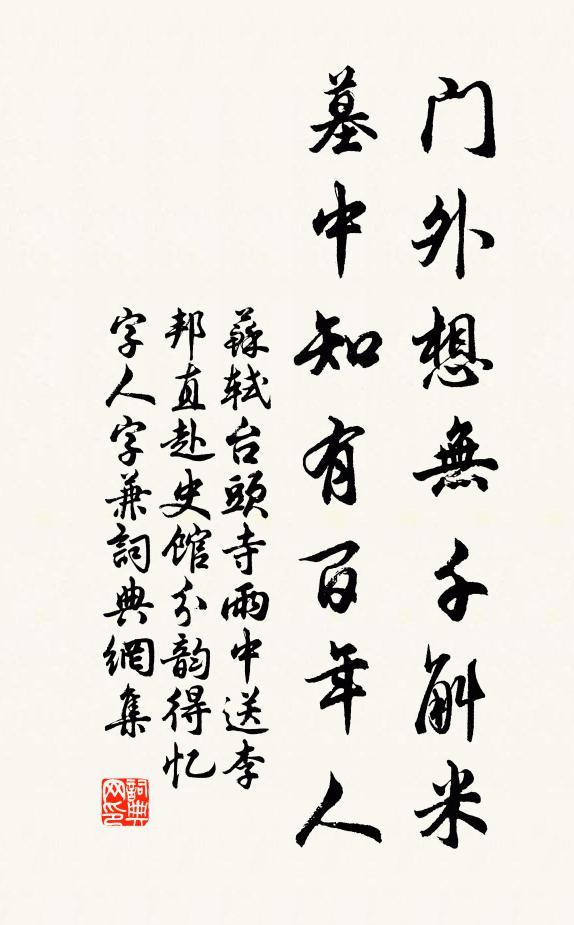 門外想無千斛米
墓中知有百年人
蘇軾台頭寺雨中送李
邦直赴史館分韵得忆
字人字兼詞典網集
詞典
网印